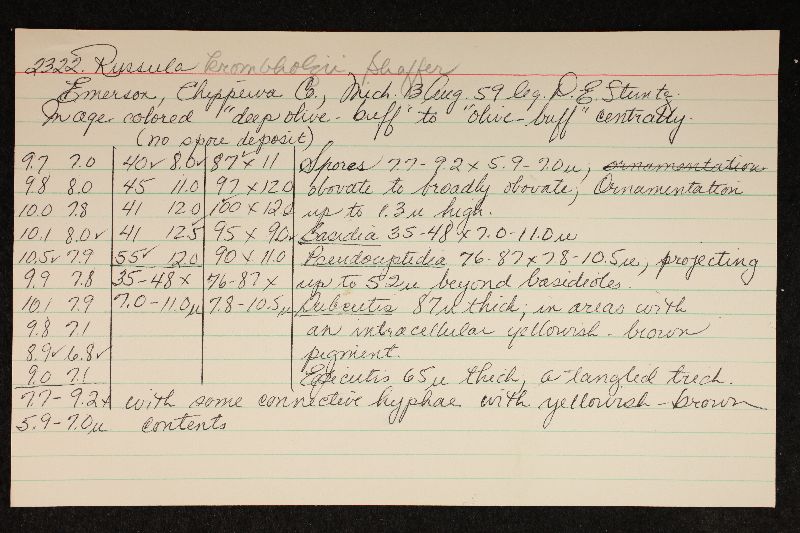 2322. Russula krombholzii Shaffer
Emerson, Chippewa Co., Mich. 13 Aug. 59 leg. D.E. Stuntz
In age colored "deep olive-buff" to "olive-buff" centrally.
(no spore deposit)
9.7 7.0 40✓ 8.0✓ 87✓ x 11 Spores 7.7-9.2 x 5.9-7.0µ; ornamentation
9.8 8.0 45 11.0 97 x 12.0 obovate to broadly obovate; Ornamentation
10.0 7.8 41 12.0 100 x 12.0 up to 1.3µ high.
10.1 8.0✓ 41 12.5 95 x 9.0✓ Basidia 35-48 x 7.0-11.0µ
10.5✓ 7.9 55✓ 12.0 90 x 11.0 Pseudocystidia 76-87 x 7.8-10.5µ, projecting
9.9 7.8 35-48 x 76-87 x up to 52µ beyond basidioles.
10.1 7.9 7.0-11.0µ 7.8-10.5µ Subcutis 87µ thick; in areas with
9.8 7.1 an intracellular yellowish-brown
8.9✓ 6.8✓ pigment.
9.0 7.1 Epicutis 65µ thick, a tangled trich.
7.7-9.2 x with some connective hyphae with yellowish-brown
5.9-7.0µ contents